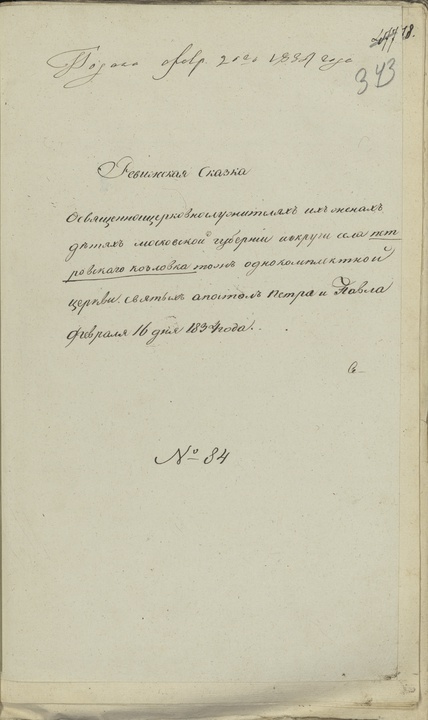 343
Подана Февр. 20го 1834 года
Ревижская Сказка
Освященноицерковнослужителяхъ ихъ женахъ
дѣтяхъ московской губерніи иокруги села пет
ровскаго козловка тожъ однокомплектной
церкви святыхъ апостолъ петра и Павла
февраля 16 дня 1834 года.
№ 84